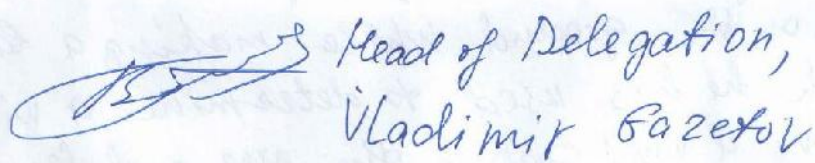 Head of Delegation,
Vladimir Gazetov